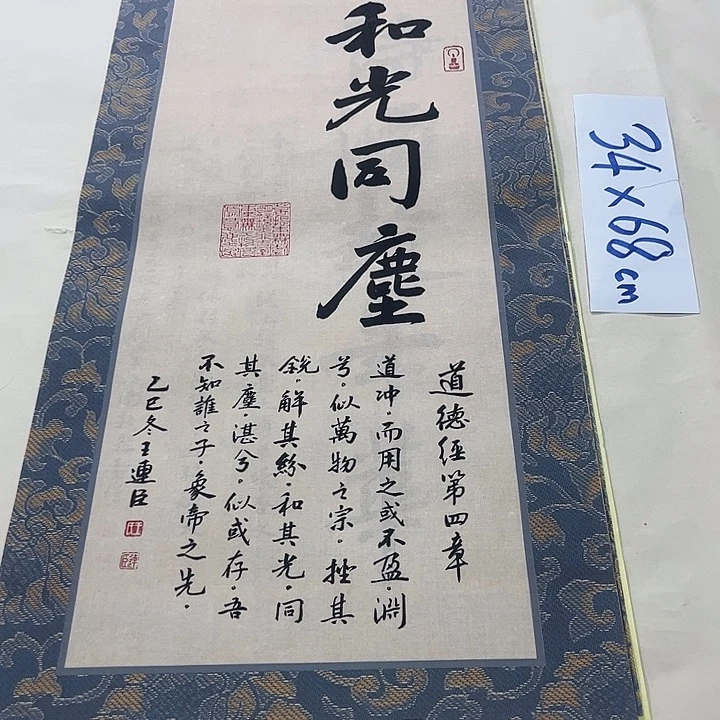 和光同塵
道德經第四章
道冲。而用之或不盈。淵
兮。似萬物之宗。挫其
銳。解其紛。和其光。同
其塵。湛兮。似或存。吾
不知誰之子。象帝之先。
乙巳冬王連臣
34x68cm